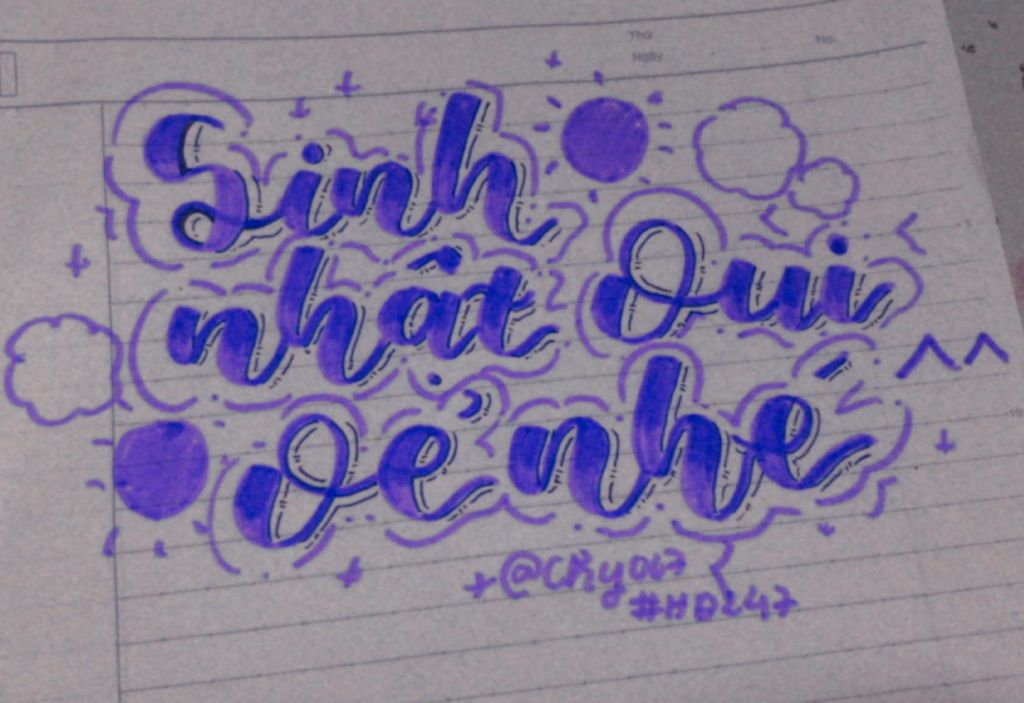 Thứ
No.
Ngày
Sinh
nhật Vui
Vẻ nhé ^^
@CRy067
#HD247